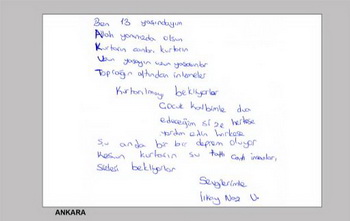 Ben 13 yaşındayım
Allah yanınızda olsun
Kurtarın canları kurtarın
Uzun yaşayın uzun yaşasınlar
Toprağın altından inlemeler
Kurtarılmayı bekliyorlar
Çocuk kalbimle dua
edeceğim size herkese
Yardım edin herkese
Şu anda bir bir deprem oluyor
Koşun kurtarın şu canlı insanları
Sizleri bekliyorlar
Sevgilerimle
İlkay Naz U.
ANKARA